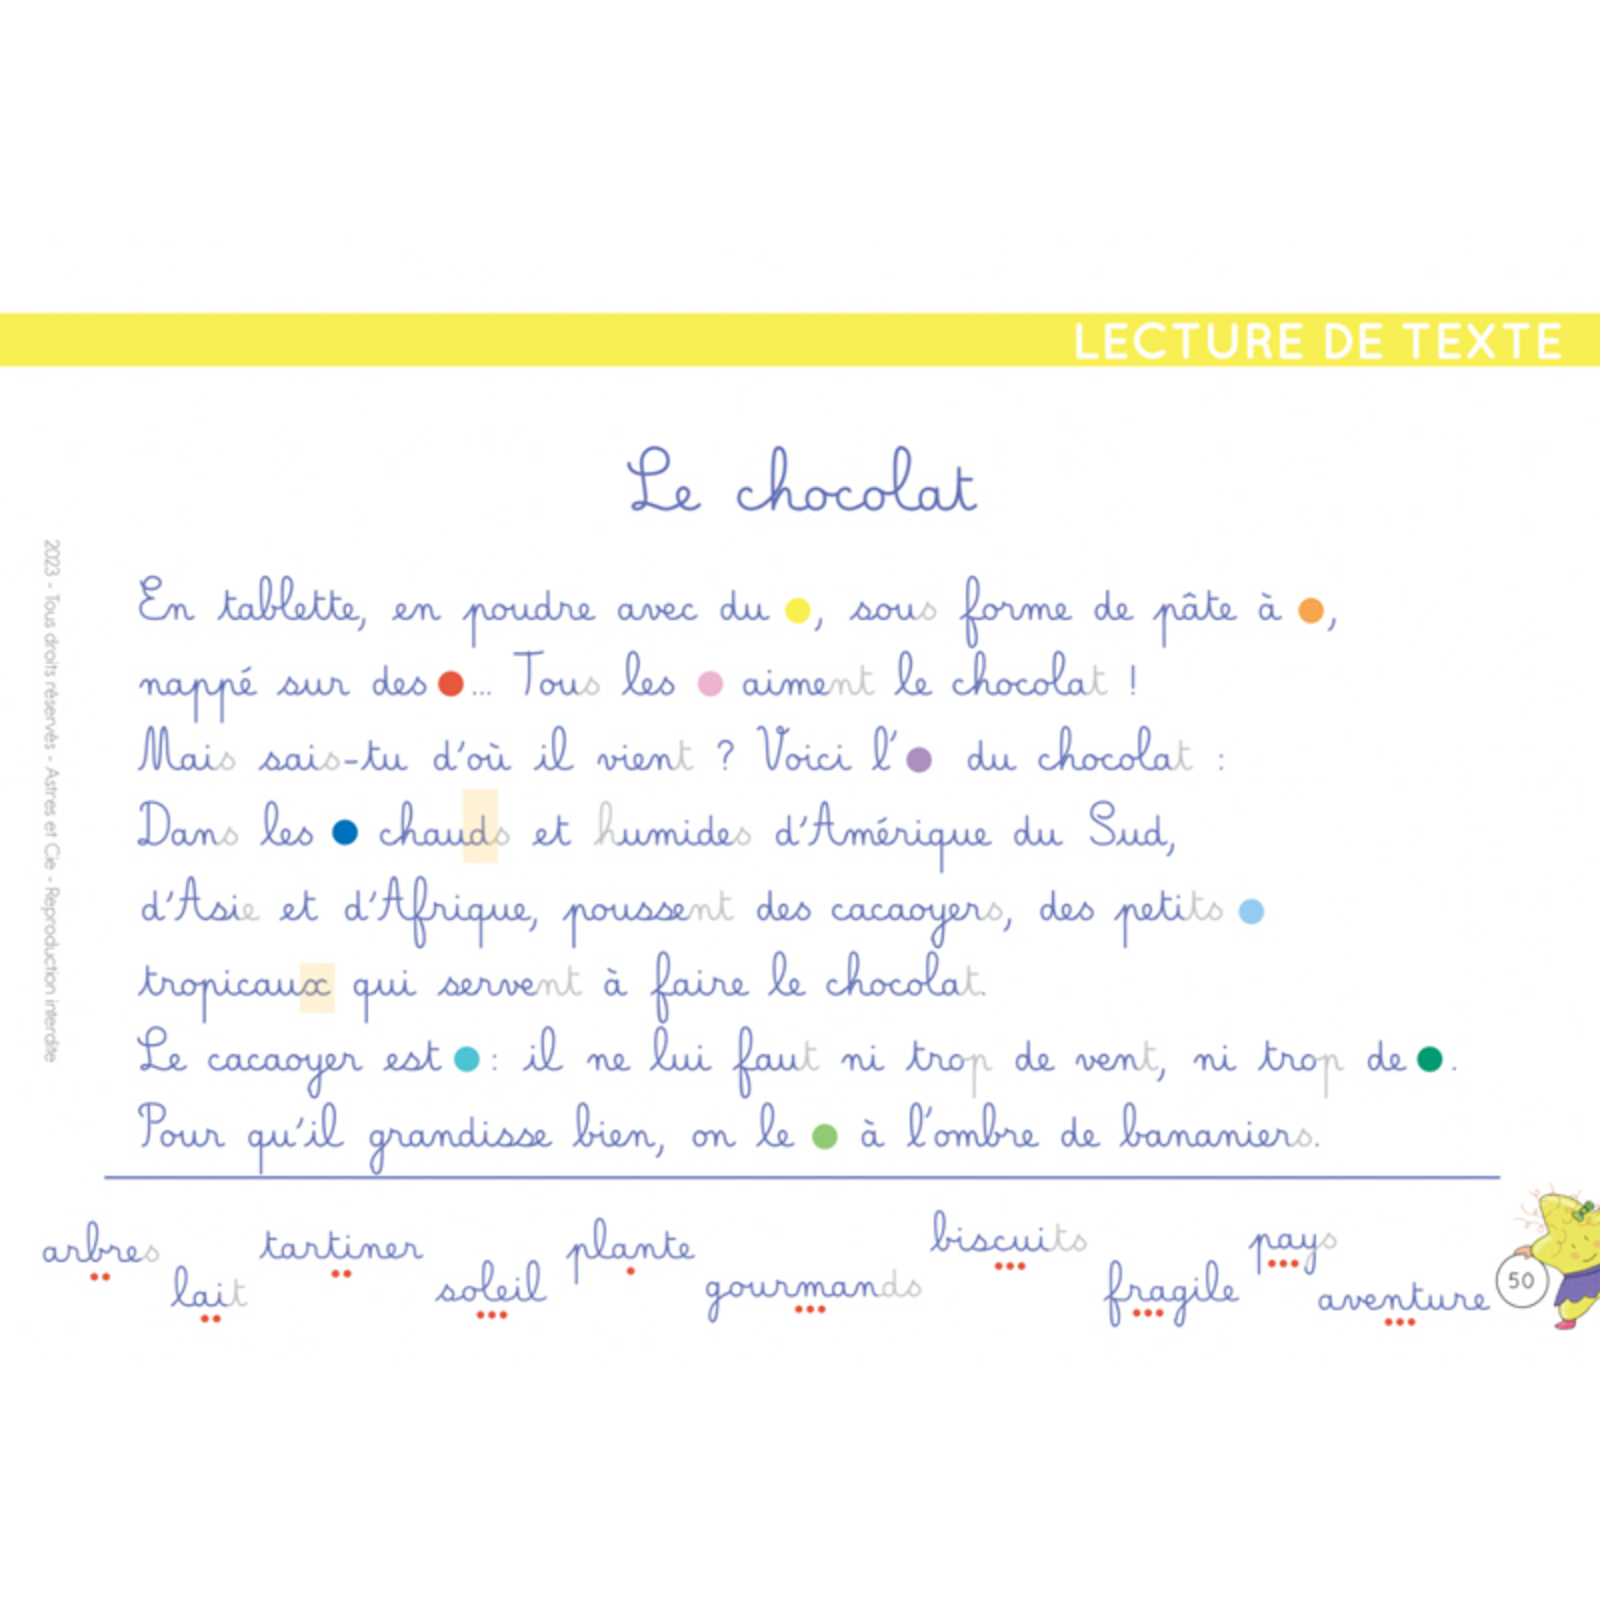 LECTURE DE TEXTE
Le chocolat
En tablette, en poudre avec du , sous forme de pâte à ,
nappé sur des ... Tous les aiment le chocolat !
Mais sais-tu d'où il vient ? Voici l' du chocolat :
Dans les chauds et humides d'Amérique du Sud,
d'Asie et d'Afrique, poussent des cacaoyers, des petits
tropicaux qui servent à faire le chocolat.
Le cacaoyer est : il ne lui faut ni trop de vent, ni trop de .
Pour qu'il grandisse bien, on le à l'ombre de bananiers.
arbres tartiner plante biscuits pays
lait soleil gourmands fragile aventure
50
2023 - Tous droits réservés - Astres et Cie - Reproduction interdite